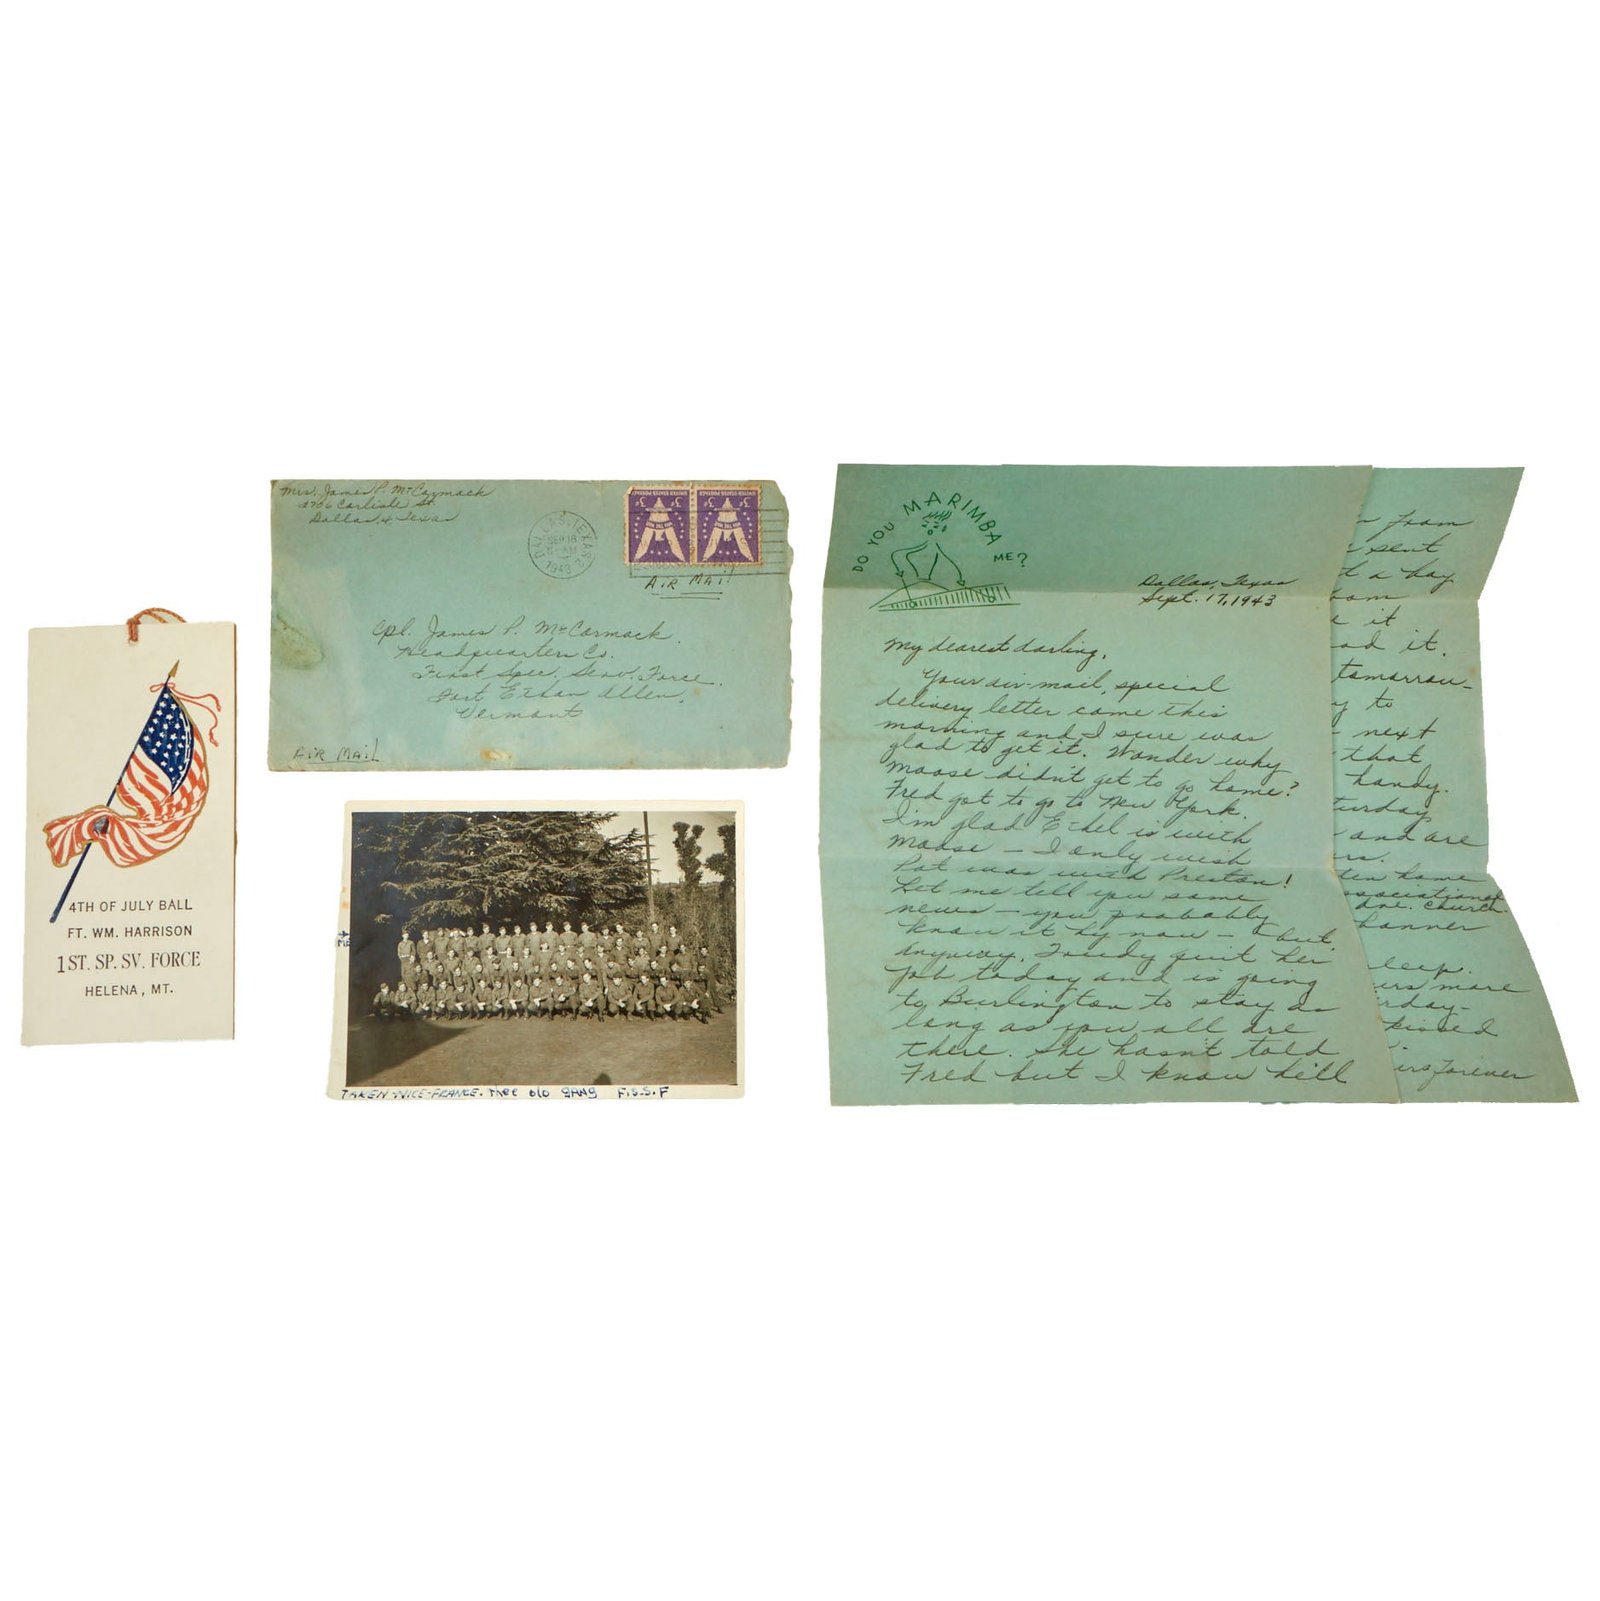 4TH OF JULY BALL
FT. WM. HARRISON
1ST. SP. SV. FORCE
HELENA, MT.
Mrs. James P. McCormack
2706 Carlisle St.
Dallas, 4 Texas
DALLAS, TEXAS
SEP 18
11 AM
1943
UNITED STATES POSTAGE
3¢
WIN THE WAR
UNITED STATES POSTAGE
3¢
WIN THE WAR
AIR MAIL
Cpl. James P. McCormack.
Headquarters Co.
First Spec. Serv. Force.
Fort Ethan Allen,
Vermont
AIR MAIL
ME
TAKEN-NICE-FRANCE. THEE OLD GANG F.S.S.F
DO YOU MARIMBA ME?
Dallas, Texas
Sept. 17, 1943
My dearest darling,
Your air-mail, special
delivery letter came this
morning and I sure was
glad to get it. Wonder why
Moose didn't get to go home?
Fred got to go to New York.
I'm glad Ethel is with
Moose - I only wish
Pat was with Preston!
Let me tell you some
news - you probably
know it by now - but,
anyway, Trudy quit her
job today and is going
to Burlington to stay as
long as you all are
there. She hasn't told
Fred but I know he'll
from
sent
a bag
it
it.
tomorrow-
to
next
that
handy.
and are
home
Church.
banner
more
kissed
forever